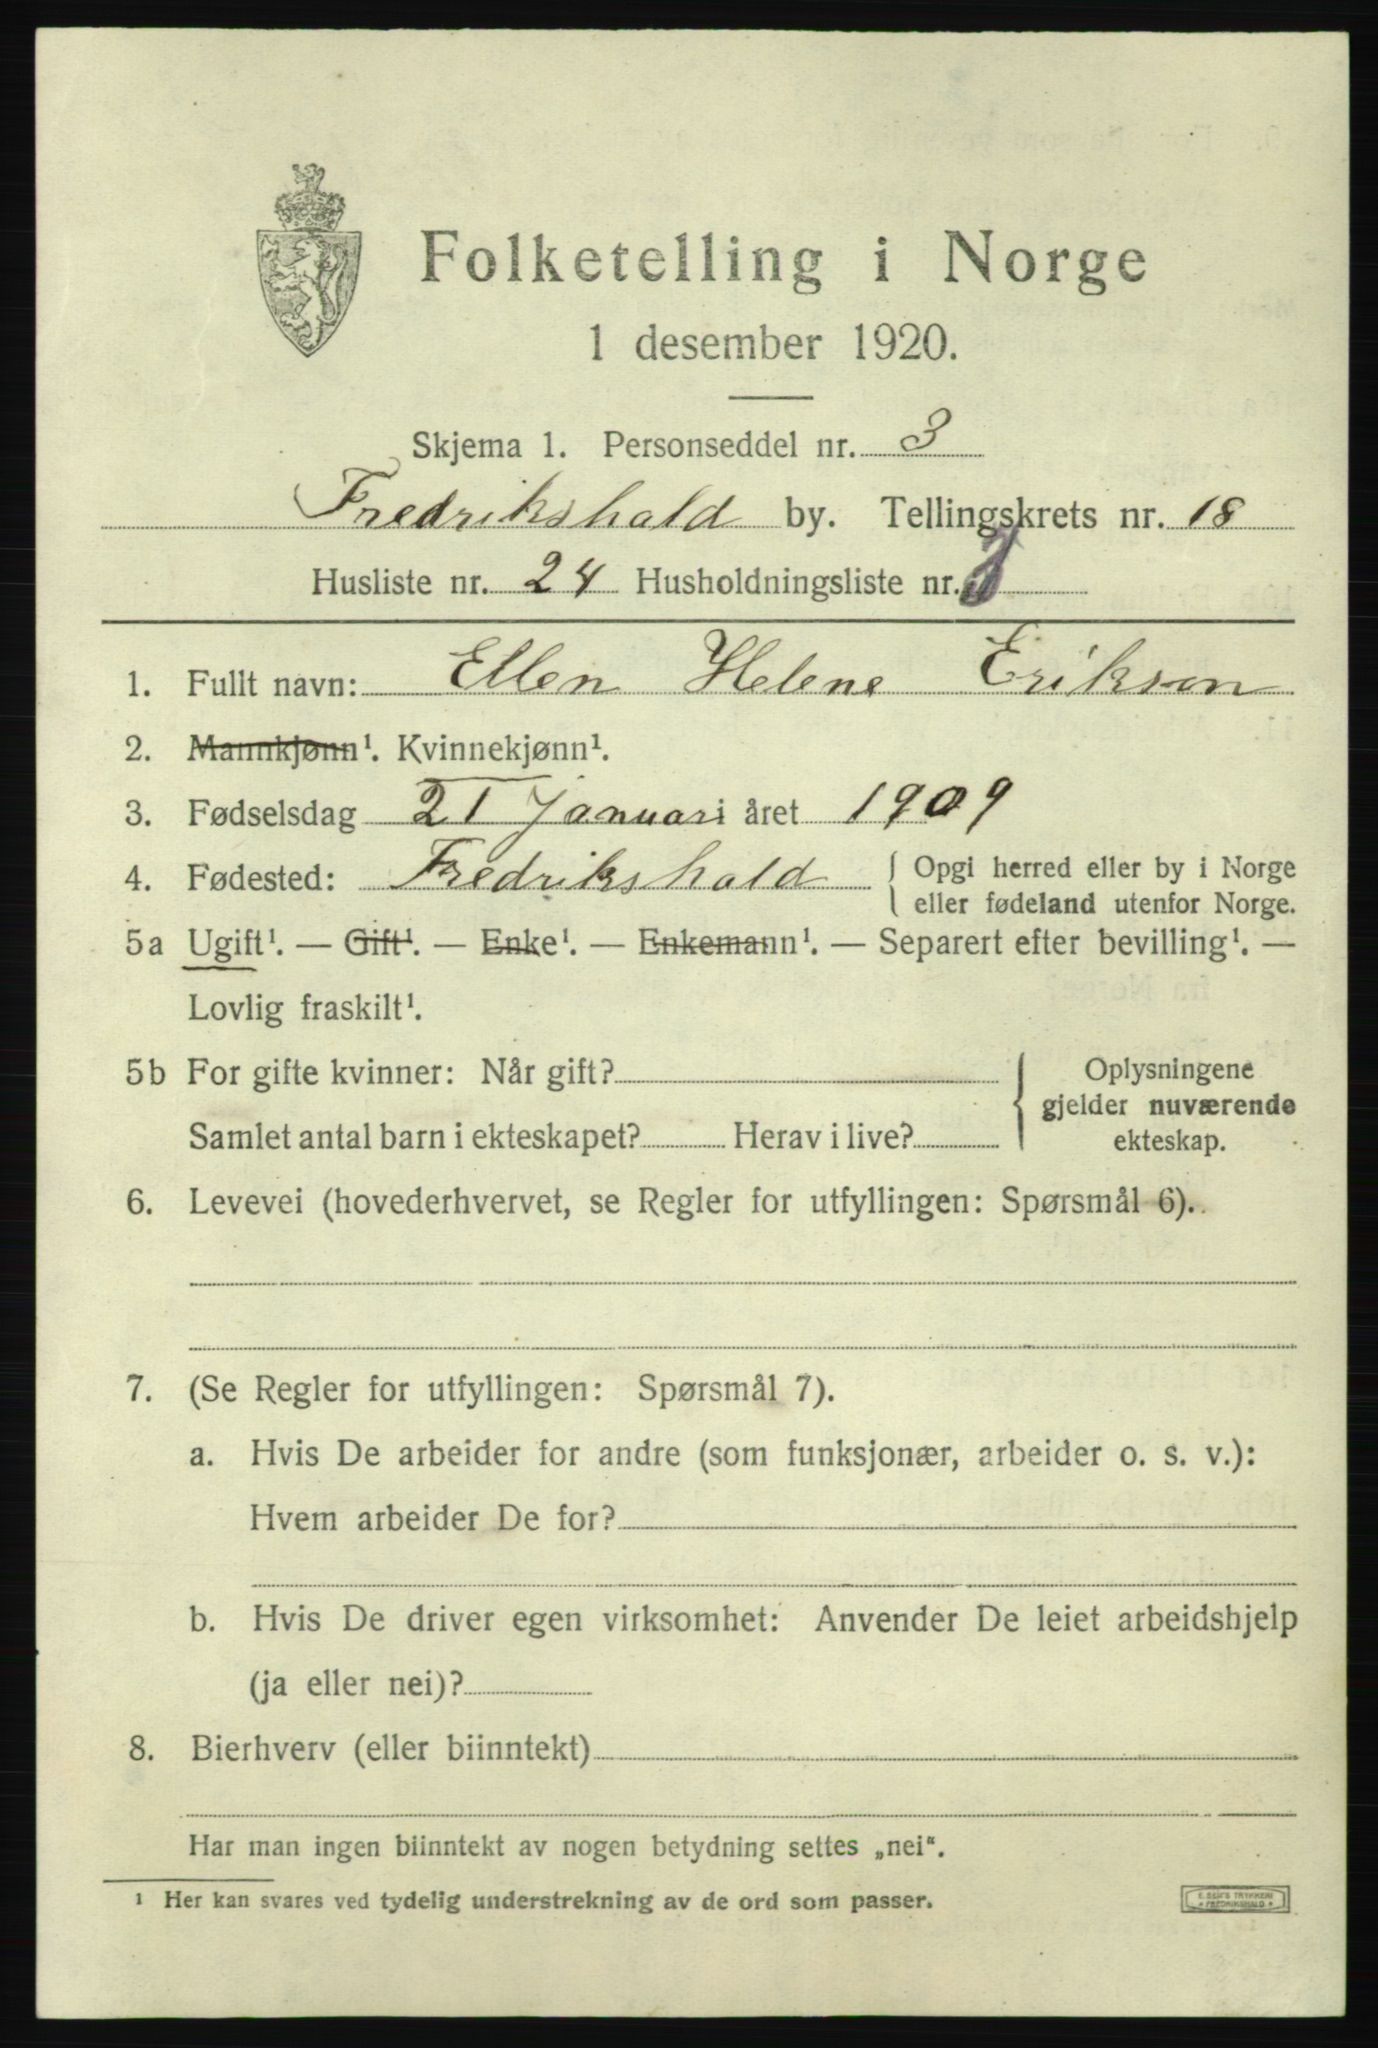 Folketelling i Norge
1 desember 1920.
Skjema 1. Personseddel nr. 3
Fredrikshald by. Tellingskrets nr. 18
Husliste nr. 24 Husholdningsliste nr.
1. Fullt navn: Ellen Helene Erikson
2. Mannkjønn¹. Kvinnekjønn¹.
3. Fødselsdag 21 Januari året 1909
4. Fødested: Fredrikshald { Opgi herred eller by i Norge
eller fødeland utenfor Norge.
5a Ugift¹. — Gift¹. — Enke¹. — Enkemann¹. — Separert efter bevilling¹. —
Lovlig fraskilt¹.
5b For gifte kvinner: Når gift? { Oplysningene
gjelder nuværende
Samlet antal barn i ekteskapet? Herav i live? ekteskap.
6. Levevei (hovederhvervet, se Regler for utfyllingen: Spørsmål 6).
7. (Se Regler for utfyllingen: Spørsmål 7).
a. Hvis De arbeider for andre (som funksjonær, arbeider o. s. v.):
Hvem arbeider De for?
b. Hvis De driver egen virksomhet: Anvender De leiet arbeidshjelp
(ja eller nei)?
8. Bierhverv (eller biinntekt)
Har man ingen biinntekt av nogen betydning settes „nei“.
¹ Her kan svares ved tydelig understrekning av de ord som passer.